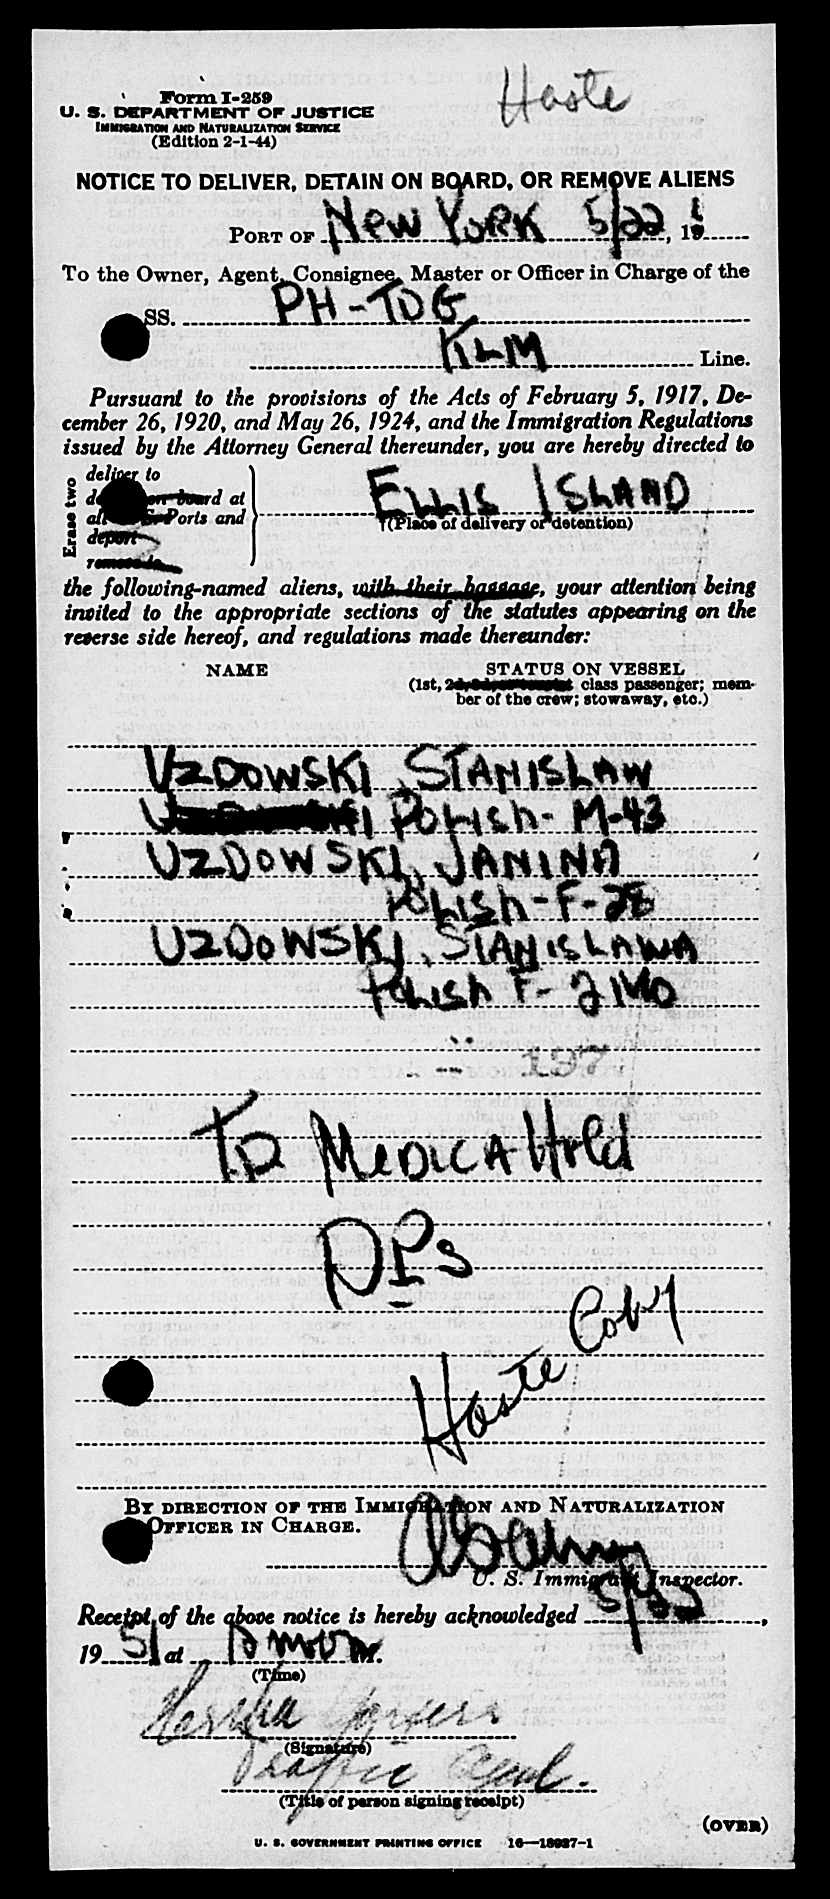 Haste
Form I-259
U. S. DEPARTMENT OF JUSTICE
IMMIGRATION AND NATURALIZATION SERVICE
(Edition 2-1-44)
NOTICE TO DELIVER, DETAIN ON BOARD, OR REMOVE ALIENS
PORT OF NEW YORK 5/22, 19
To the Owner, Agent, Consignee, Master or Officer in Charge of the
SS. PH-TDG
KLM Line.
Pursuant to the provisions of the Acts of February 5, 1917, De-
cember 26, 1920, and May 26, 1924, and the Immigration Regulations
issued by the Attorney General thereunder, you are hereby directed to
Erase two
deliver to
on board at
Ports and
deport
ELLIS ISLAND
(Place of delivery or detention)
the following-named aliens, with their baggage, your attention being
invited to the appropriate sections of the statutes appearing on the
reverse side hereof, and regulations made thereunder:
NAME STATUS ON VESSEL
(1st, 2d, class passenger; mem-
ber of the crew; stowaway, etc.)
UZDOWSKI, STANISLAW
POLISH - M-43
UZDOWSKI, JANINA
POLISH - F - 28
UZDOWSKI, STANISLAWA
POLISH F - 2 1MO
197
TD MEDICA Hold
DPs
Haste Copy
BY DIRECTION OF THE IMMIGRATION AND NATURALIZATION
OFFICER IN CHARGE.
U. S. Immigrant Inspector.
Receipt of the above notice is hereby acknowledged 5/22,
19 51 at M.
(Time)
(Signature)
Traffic Agent.
(Title of person signing receipt)
(OVER)
U. S. GOVERNMENT PRINTING OFFICE 16—18927-1